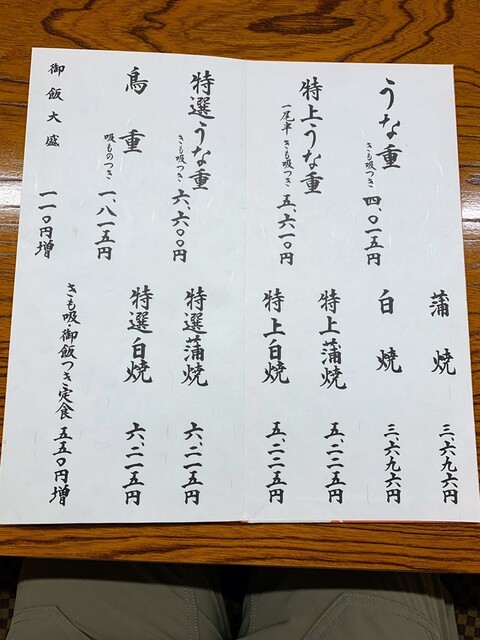 うな重 きも吸つき 四、〇一五円
特上うな重 一尾半 きも吸つき 五、六一〇円
特選うな重 きも吸つき 六、六〇〇円
鳥重 吸ものつき 一、八一五円
御飯大盛 一一〇円増
蒲焼 三、六九六円
白焼 三、六九六円
特上蒲焼 五、二二五円
特上白焼 五、二二五円
特選蒲焼 六、二一五円
特選白焼 六、二一五円
きも吸御飯つき定食 五五〇円増